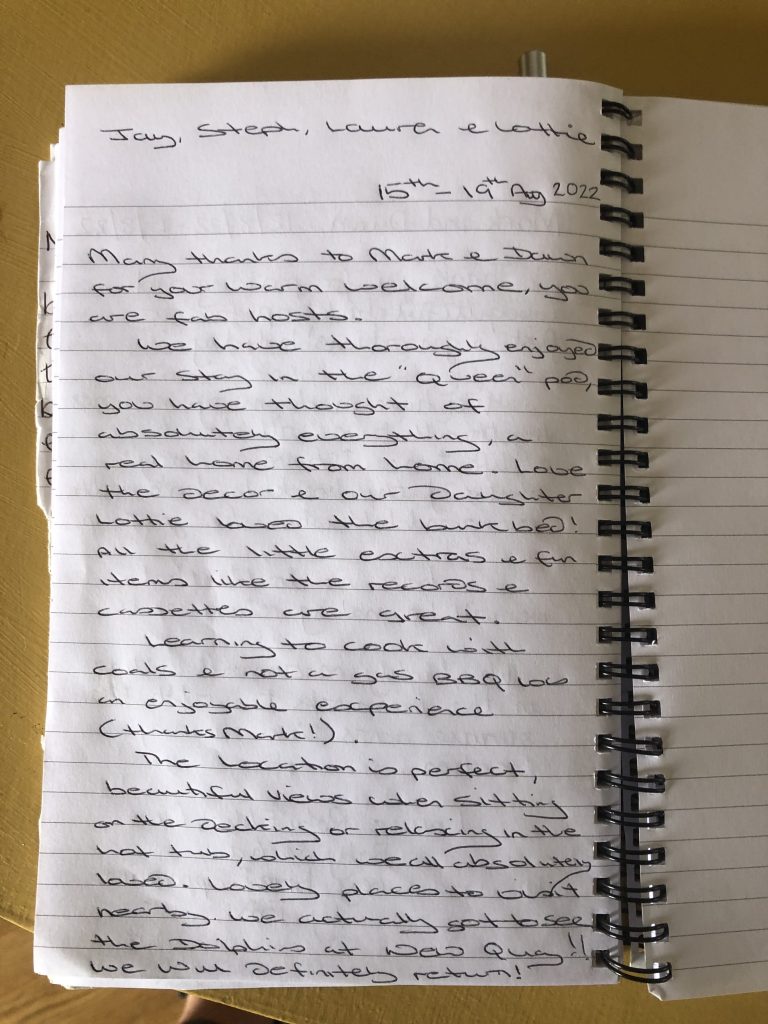 Jay, Steph, Laura & Lottie
15th - 19th Aug 2022
Many thanks to Mark & Dawn
for your warm welcome, you
are fab hosts.
We have thoroughly enjoyed
our stay in the "Queen" pod,
you have thought of
absolutely everything, a
real home from home. Love
the decor & our Daughter
Lottie loved the bunk bed!
All the little extras & fun
items like the records &
cassettes are great.
Learning to cook with
coals & not a gas BBQ was
an enjoyable experience
(thanks Mark!).
The location is perfect,
beautiful views when sitting
on the decking or relaxing in the
hot tub, which we all absolutely
loved. Lovely places to visit
nearby. We actually got to see
the Dolphins at New Quay!!
We will definitely return!